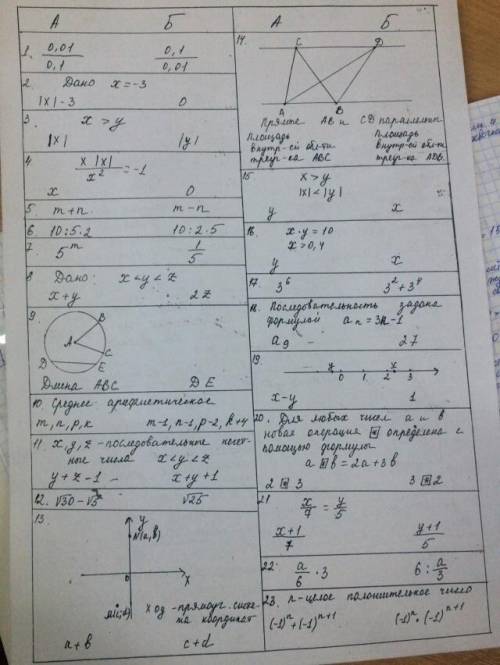 А Б
1. 0,01/0,1 0,1/0,01
2. Дано x = -3
|x| - 3 0
3. x > y
|x| |y|
4 x |x| / x² = -1
x 0
5. m + n m - n
6. 10:5·2 10:2·5
7. 5^m 1/5
8 Дано: x < y < z
x + y 2z
9.
B
A
C
D E
Длина ABC DE
10. Среднее арифметическое
m, n, p, k m-1, n-1, p-2, k+4
11 x, y, z - последовательные нечет-
ные числа x < y < z
y + z - 1 x + y + 1
12. √30 - √5 √25
13.
y
N(a,b)
0 x
M(c,d)
xoy - прямоуг. систе-
ма координат
a + b c + d
А Б
14. C D
A B
Прямые AB и CD параллельн.
Площадь Площадь
внутр-ей обл-ти внутр-ей обл-ти
треуг-ка ABC треуг-ка ADB.
15 x > y
|x| < |y|
y x
16. x·y = 10
x > 0,4
y x
17. 3⁶ 3² + 3⁴
18. Последовательность задана
формулой aₙ = 3n - 1
a₉ 27
19.
y x
0 1 2 3
x - y 1
20. Для любых чисел a и b
новая операция ⊡ определена с
помощью формулы
a ⊡ b = 2a + 3b
2 ⊡ 3 3 ⊡ 2
21 x/7 = y/5
x+1/7 y+1/5
22. a/6 · 3 6 : a/3
23. n - целое положительное число
(-1)ⁿ + (-1)ⁿ⁺¹ (-1)ⁿ · (-1)ⁿ⁺¹